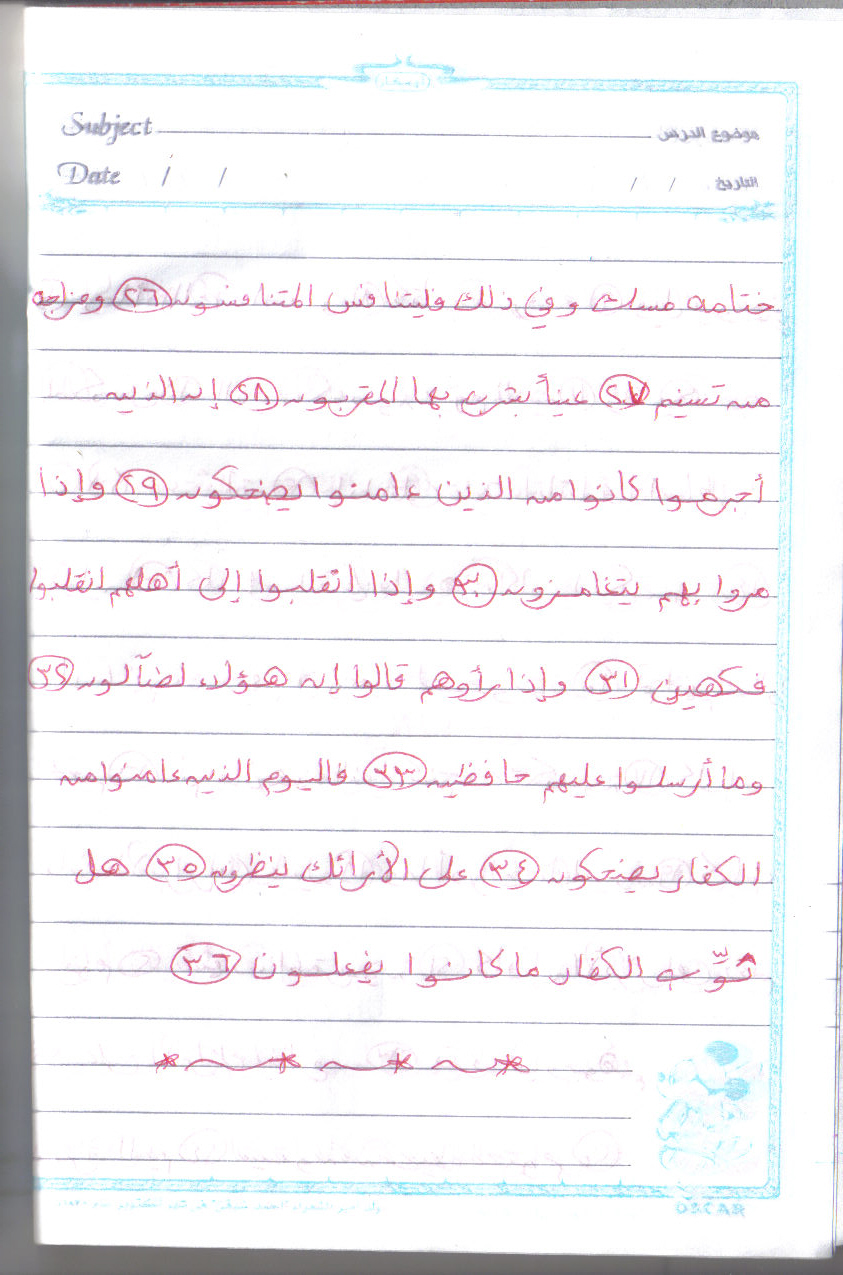 Subject موضوع الدرس
Date / / التاريخ / /
ختامه مسك وفي ذلك فليتنافس المتنافسون (٢٦) ومزاجه
من تسنيم (٢٧) عيناً يشرب بها المقربون (٢٨) إن الذين
أجرموا كانوا من الذين ءامنوا يضحكون (٢٩) وإذا
مروا بهم يتغامزون (٣٠) وإذا انقلبوا إلى أهلهم انقلبوا
فكهين (٣١) وإذا رأوهم قالوا إن هؤلاء لضآلون (٣٢)
وما أرسلوا عليهم حافظين (٣٣) فاليوم الذين ءامنوا من
الكفار يضحكون (٣٤) على الأرائك ينظرون (٣٥) هل
ثوِّب الكفار ما كانوا يفعلون (٣٦)